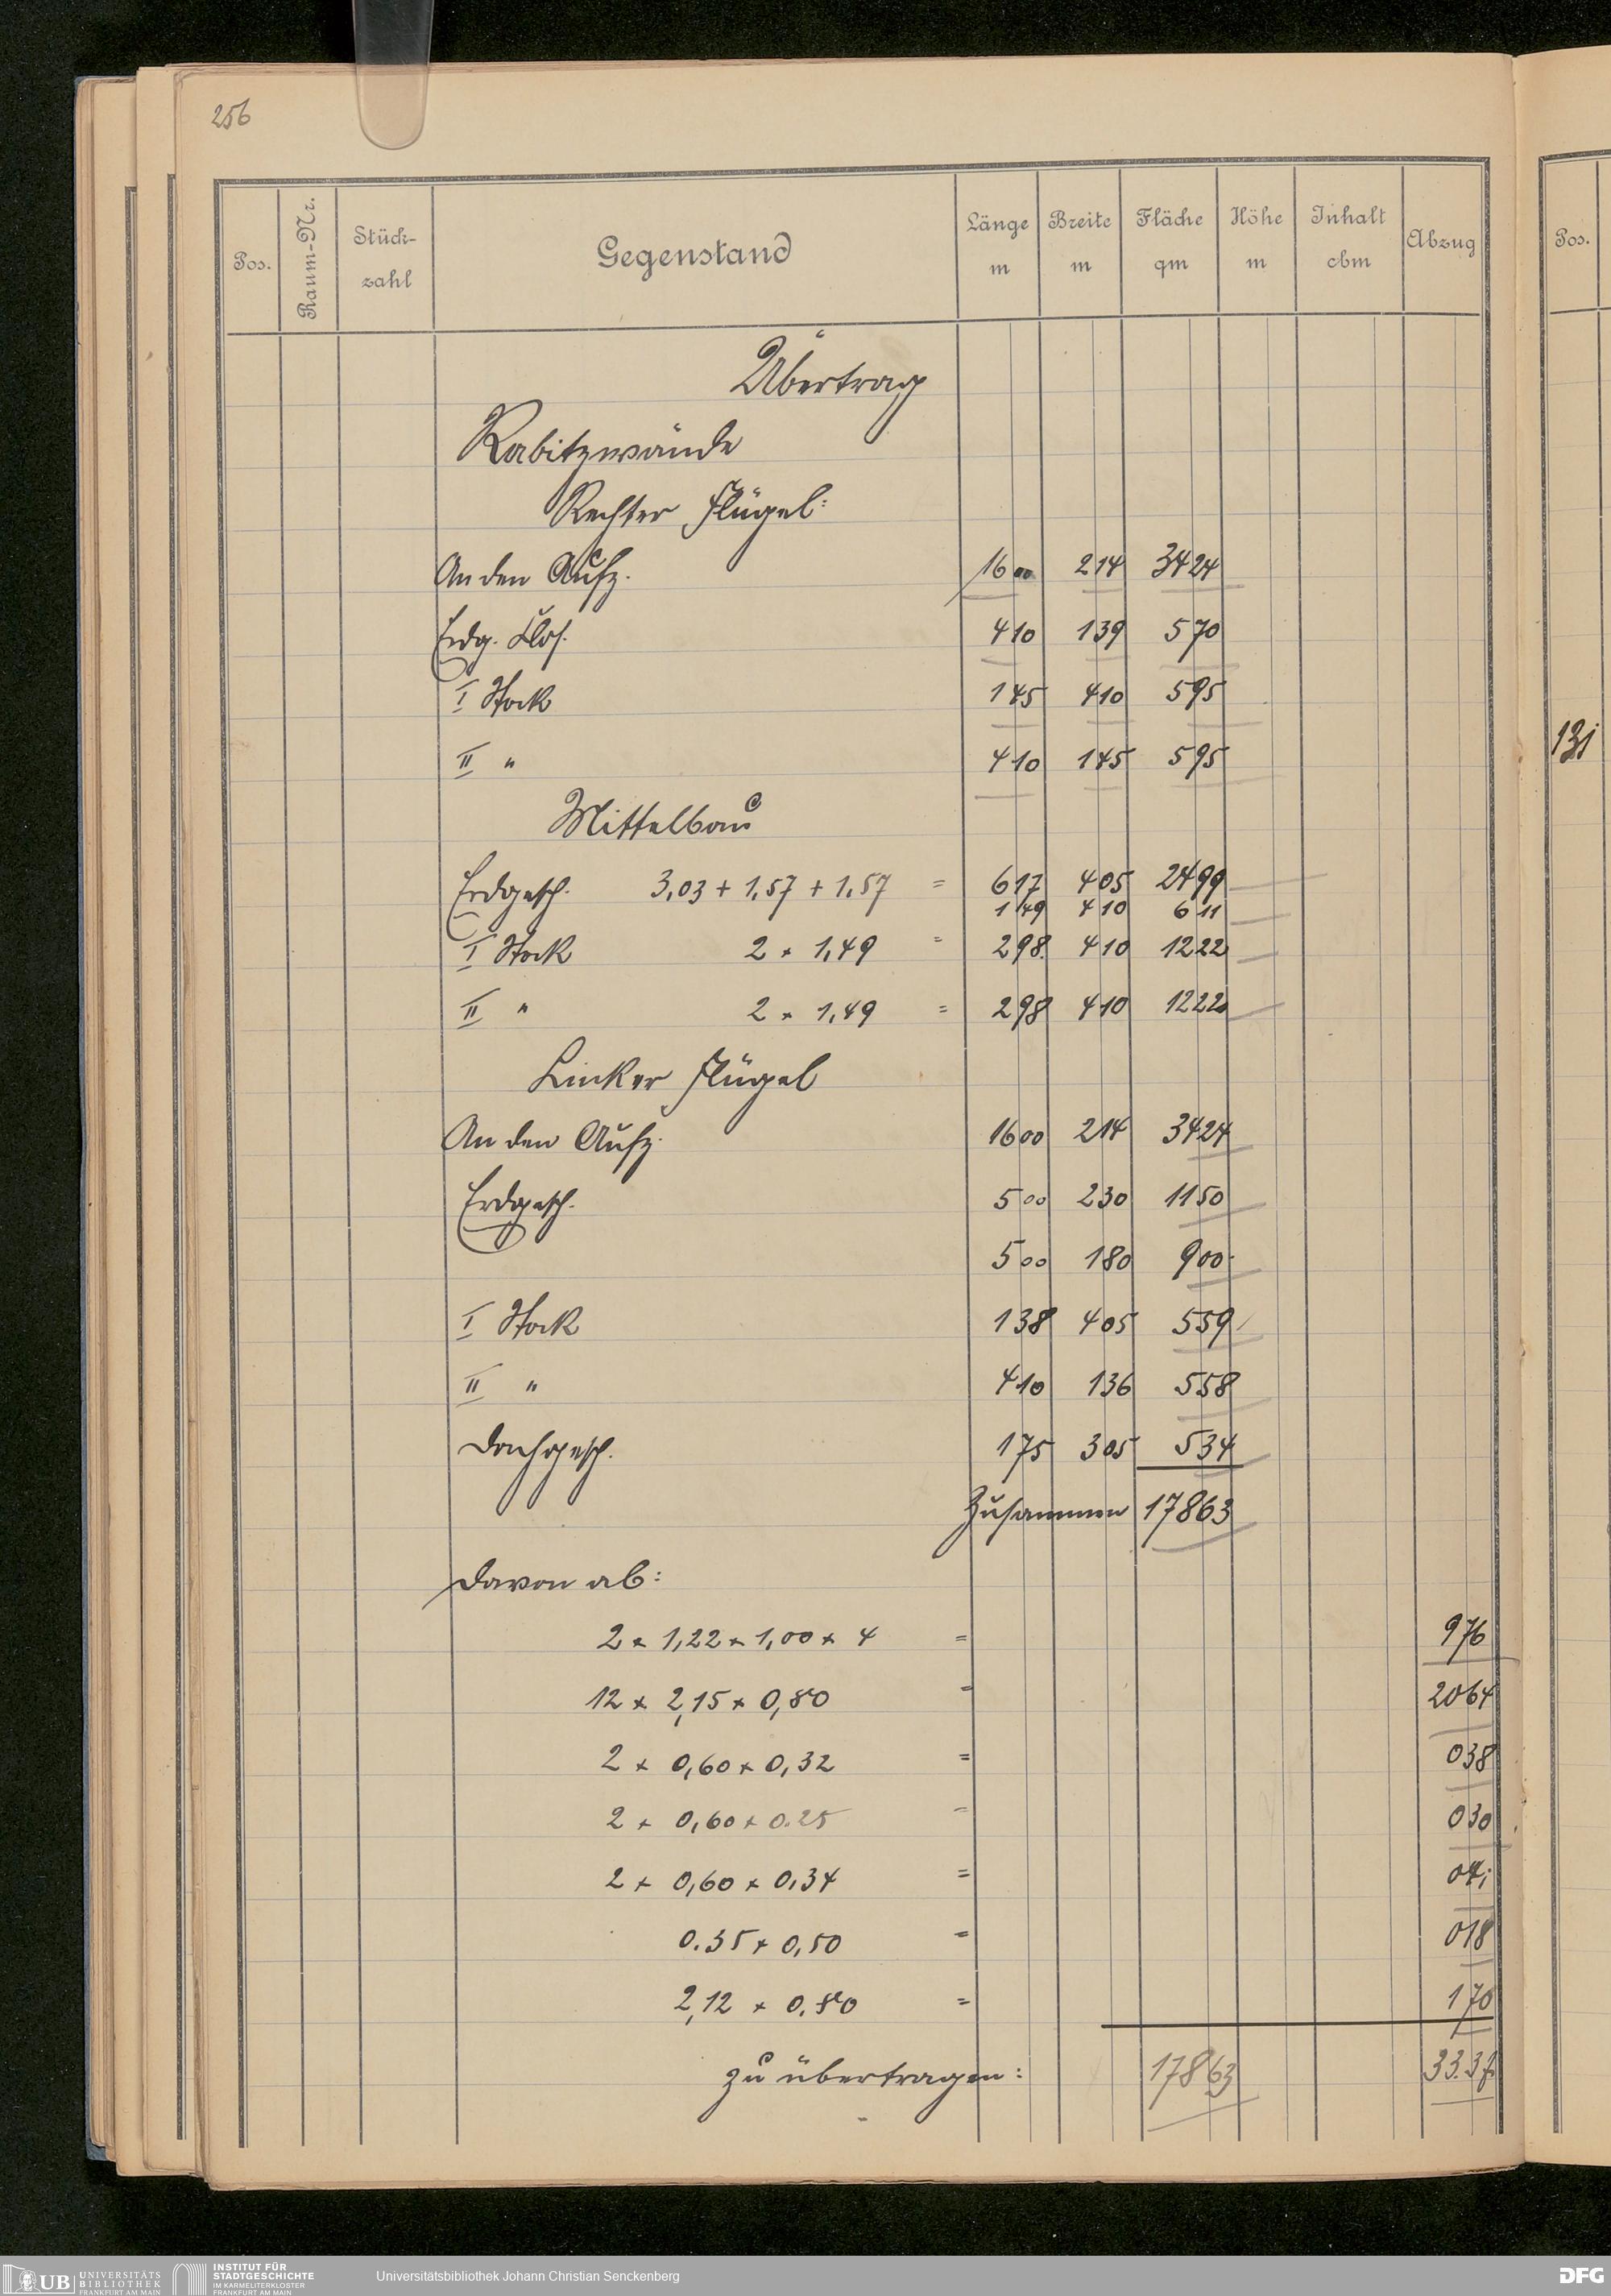 256
Pos. Raum-Nr. Stück-zahl Gegenstand Länge m Breite m Fläche qm Höhe m Inhalt cbm Abzug
Pos.
Übertrag
Rabitzwände
Rechter Flügel:
An den Aufz. 16 00 2 14 34 24
Erdg. Klos. 4 10 1 39 5 70
I Stock 1 45 4 10 5 95
II " 4 10 1 45 5 95
131
Mittelbau
Erdgesch. 3,03 + 1,57 + 1,57 = 6 17 4 05 24 99
1 49 4 10 6 11
I Stock 2 × 1,49 = 2 98 4 10 12 22
II " 2 × 1,49 = 2 98 4 10 12 22
Linker Flügel
An den Aufz. 16 00 2 14 34 24
Erdgesch. 5 00 2 30 11 50
5 00 1 80 9 00
I Stock 1 38 4 05 5 59
II " 4 10 1 36 5 58
Dachgesch. 1 75 3 05 5 34
Zusammen 178 63
Davon ab:
2 × 1,22 × 1,00 × 4 = 9 76
12 × 2,15 × 0,80 = 20 64
2 × 0,60 × 0,32 = 0 38
2 × 0,60 × 0.25 = 0 30
2 × 0,60 × 0,34 = 0 41
0.35 × 0,50 = 0 18
2,12 × 0,80 = 1 70
zu übertragen: 178 63 33.37
UB UNIVERSITÄTS BIBLIOTHEK FRANKFURT AM MAIN
INSTITUT FÜR STADTGESCHICHTE IM KARMELITERKLOSTER FRANKFURT AM MAIN
Universitätsbibliothek Johann Christian Senckenberg
DFG